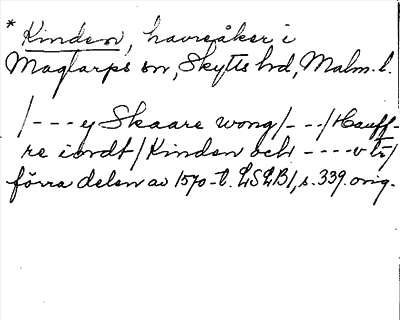 * Kinden, havreåker i
Maglarps sn, Skytts hd, Malm. l.
/---y Skaare wong/---/Hauff-
re iordt/Kinden och ----v tr/
förra delen av 1570-t. LSLB1, s. 339. orig.